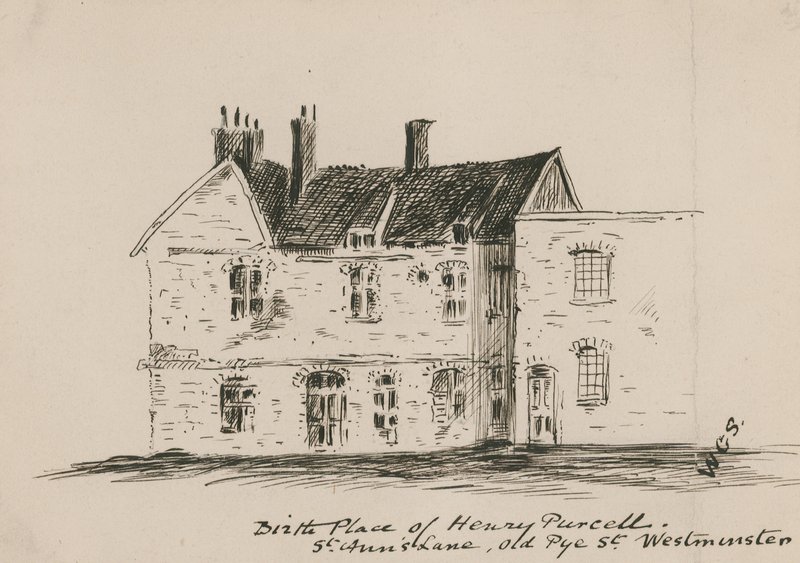 W C S.
Birth Place of Henry Purcell.
St. Ann's Lane, Old Pye St. Westminster